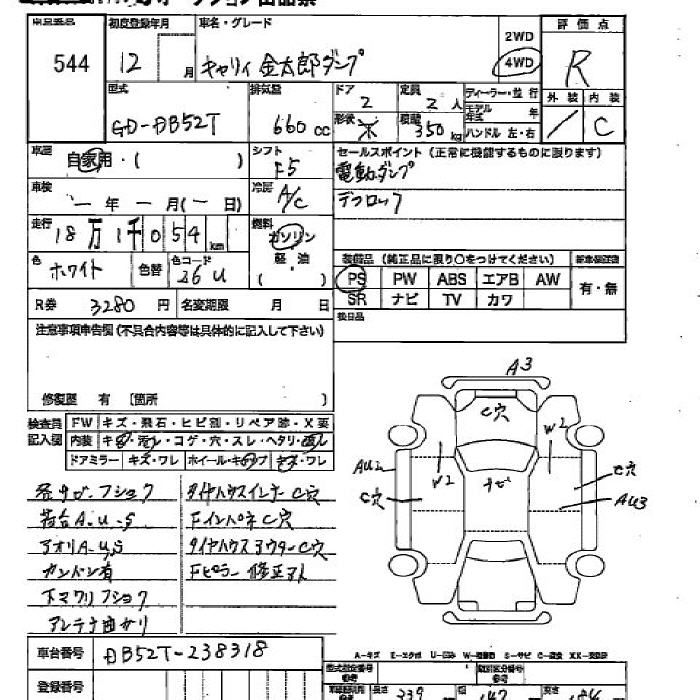 出品番号 初度登録年月 車名・グレード 評価点
544 12 月 キャリイ 金太郎ダンプ 2WD 4WD R
型式 排気量 ドア 定員 ディーラー・並行 外装 内装
GD-DB52T 660 cc 2 2人 モデル年式 年
形状 積載 350 kg ハンドル 左・右 / C
車歴 自家用・( ) シフト F5 セールスポイント (正常に機能するものに限ります)
電動ダンプ
車検 ー年ー月(ー日) 冷房 A/C デフロック
走行 18万1千054 km 燃料 ガソリン 軽・油 ( )
装備品 (純正品に限り○をつけてください) 新車保証書
色 ホワイト 色替 色コード 26U PS PW ABS エアB AW 有・無
R券 3280円 名変期限 月 日 SR ナビ TV カワ
注意事項申告欄 (不具合内容等は具体的に記入して下さい) 後日品
修復歴 有 [箇所 )
検査員 FW キズ・飛石・ヒビ割・リペア跡・X要
記入欄 内装 キズ・汚れ・コゲ・穴・スレ・ヘタリ・
ドアミラー キズ・ワレ ホイール・キャップ キズ・ワレ
各サビ・フショク タイヤハウスインナーC穴
荷台A.U.S FインパネC穴
アオリA.U.S タイヤハウスアウターC穴
カンバン有 Fピラー修正
下マワリフショク
アンテナ曲ガリ
A3
C穴
W2
W2
ナビ
AU2
C穴
C穴
AU3
A-キズ E-エクボ U-凹み W-補修跡 S-サビ C-腐食 XX-交換済
車台番号 DB52T-238318
型式指定番号 類別区分番号
登録番号 長さ 339 幅 147 高さ